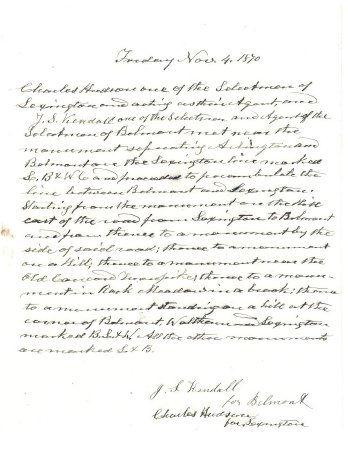 Friday Nov. 4, 1870
Charles Hudson one of the Selectmen of
Lexington and acting as their Agent, and
J. S. Kendall one of the Selectmen and Agent of the
Selectmen of Belmont met near the
monument separating Arlington and
Belmont on the Lexington line marked
L, B & W C and proceeded to perambulate the
line between Belmont and Lexington.
Starting from the monument on the Hill
east of the road from Lexington to Belmont
and from thence to a monument by the
side of said road; thence to a monument
on a Hill; thence to a monument near the
Old Concord Turnpike; thence to a monu-
ment in Rock Meadow in a brook; thence
to a monument standing on a hill at the
corner of Belmont, Waltham and Lexington
marked B. L & W. All the other monuments
are marked L & B.
J. S. Kendall
for Belmont
Charles Hudson
for Lexington